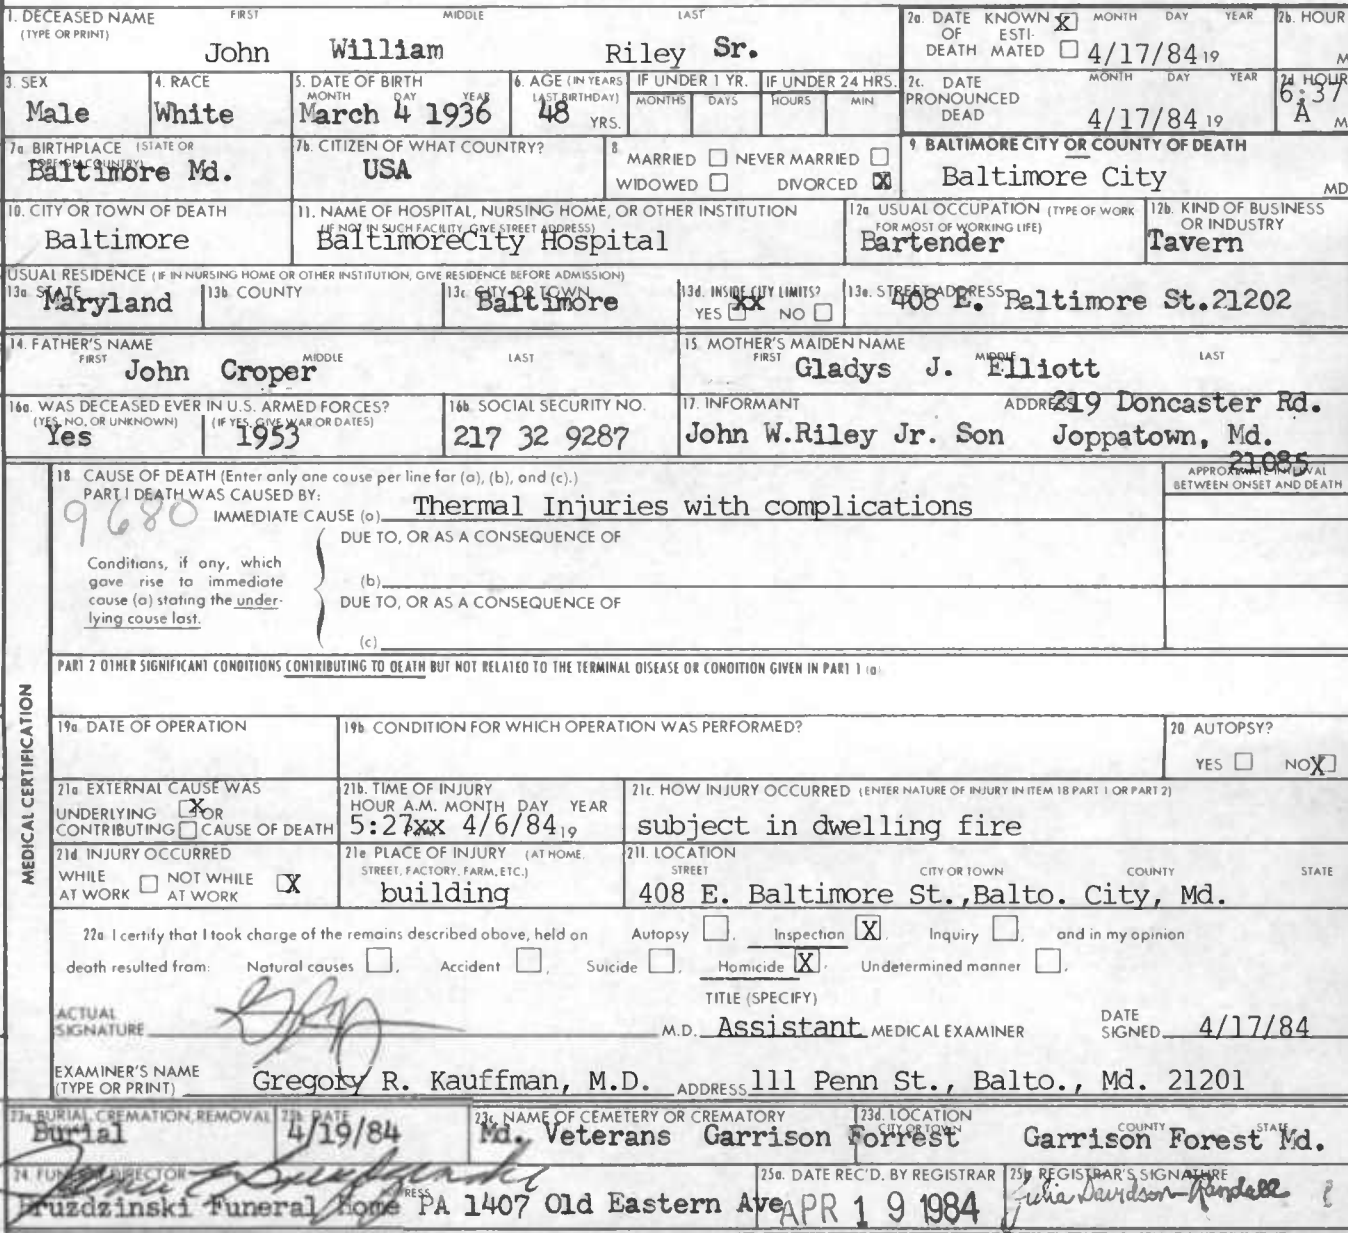 1. DECEASED NAME FIRST MIDDLE LAST
(TYPE OR PRINT)
John William Riley Sr.
2a. DATE KNOWN X MONTH DAY YEAR
OF ESTI-
DEATH MATED 4/17/84 19
2b. HOUR
M
3. SEX
Male
4. RACE
White
5. DATE OF BIRTH
MONTH DAY YEAR
March 4 1936
6. AGE (IN YEARS
LAST BIRTHDAY)
48 YRS.
IF UNDER 1 YR.
MONTHS DAYS
IF UNDER 24 HRS.
HOURS MIN
2c. DATE MONTH DAY YEAR
PRONOUNCED
DEAD 4/17/84 19
2d HOUR
6:37
A M
7a BIRTHPLACE (STATE OR
FOREIGN COUNTRY)
Baltimore Md.
7b. CITIZEN OF WHAT COUNTRY?
USA
8.
MARRIED NEVER MARRIED
WIDOWED DIVORCED X
9. BALTIMORE CITY OR COUNTY OF DEATH
Baltimore City
MD
10. CITY OR TOWN OF DEATH
Baltimore
11. NAME OF HOSPITAL, NURSING HOME, OR OTHER INSTITUTION
(IF NOT IN SUCH FACILITY, GIVE STREET ADDRESS)
BaltimoreCity Hospital
12a. USUAL OCCUPATION (TYPE OF WORK
FOR MOST OF WORKING LIFE)
Bartender
12b. KIND OF BUSINESS
OR INDUSTRY
Tavern
USUAL RESIDENCE (IF IN NURSING HOME OR OTHER INSTITUTION, GIVE RESIDENCE BEFORE ADMISSION)
13a. STATE
Maryland
13b. COUNTY
13c. CITY OR TOWN
Baltimore
13d. INSIDE CITY LIMITS?
xx
YES NO
13e. STREET ADDRESS
408 E. Baltimore St.21202
14. FATHER'S NAME
FIRST MIDDLE LAST
John Croper
15. MOTHER'S MAIDEN NAME
FIRST MIDDLE LAST
Gladys J. Elliott
16a. WAS DECEASED EVER IN U.S. ARMED FORCES?
(YES, NO, OR UNKNOWN) (IF YES, GIVE WAR OR DATES)
Yes 1953
16b. SOCIAL SECURITY NO.
217 32 9287
17. INFORMANT ADDRESS
219 Doncaster Rd.
John W.Riley Jr. Son Joppatown, Md.
21085
MEDICAL CERTIFICATION
18. CAUSE OF DEATH (Enter only one cause per line for (a), (b), and (c).)
APPROXIMATE INTERVAL
BETWEEN ONSET AND DEATH
PART I DEATH WAS CAUSED BY:
9680
IMMEDIATE CAUSE (a) Thermal Injuries with complications
DUE TO, OR AS A CONSEQUENCE OF
Conditions, if any, which
gave rise to immediate
cause (a) stating the under-
lying cause last.
(b)
DUE TO, OR AS A CONSEQUENCE OF
(c)
PART 2 OTHER SIGNIFICANT CONDITIONS CONTRIBUTING TO DEATH BUT NOT RELATED TO THE TERMINAL DISEASE OR CONDITION GIVEN IN PART 1 (a)
19a. DATE OF OPERATION
19b. CONDITION FOR WHICH OPERATION WAS PERFORMED?
20 AUTOPSY?
YES NO X
21a EXTERNAL CAUSE WAS
UNDERLYING X OR
CONTRIBUTING CAUSE OF DEATH
21b. TIME OF INJURY
HOUR A.M. MONTH DAY YEAR
5:27xx 4/6/84 19
21c. HOW INJURY OCCURRED (ENTER NATURE OF INJURY IN ITEM 18 PART 1 OR PART 2)
subject in dwelling fire
21d INJURY OCCURRED
WHILE NOT WHILE
AT WORK AT WORK X
21e PLACE OF INJURY (AT HOME,
STREET, FACTORY, FARM, ETC.)
building
21f. LOCATION
STREET CITY OR TOWN COUNTY STATE
408 E. Baltimore St.,Balto. City, Md.
22a I certify that I took charge of the remains described above, held on Autopsy , Inspection X , Inquiry , and in my opinion
death resulted from: Natural causes , Accident , Suicide , Homicide X , Undetermined manner .
TITLE (SPECIFY)
ACTUAL
SIGNATURE M.D. Assistant MEDICAL EXAMINER
DATE
SIGNED 4/17/84
EXAMINER'S NAME
(TYPE OR PRINT) Gregory R. Kauffman, M.D. ADDRESS 111 Penn St., Balto., Md. 21201
23a. BURIAL, CREMATION, REMOVAL
Burial
23b. DATE
4/19/84
23c. NAME OF CEMETERY OR CREMATORY
Md. Veterans Garrison Forrest
23d. LOCATION
CITY OR TOWN COUNTY STATE
Garrison Forest Md.
24. FUNERAL DIRECTOR
ADDRESS
Bruzdzinski Funeral Home PA 1407 Old Eastern Ave
25a. DATE REC'D. BY REGISTRAR
APR 19 1984
25b. REGISTRAR'S SIGNATURE
Julia Davidson-Randall